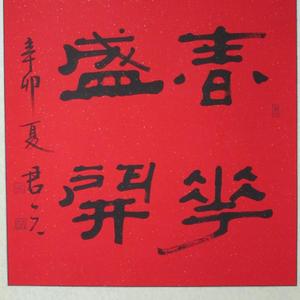 春華
盛開
辛卯夏君立